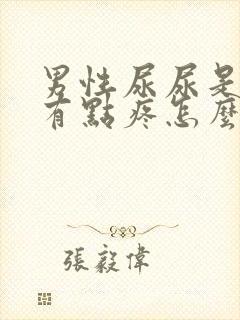 男性尿尿是
有點疼怎麼
張毅偉